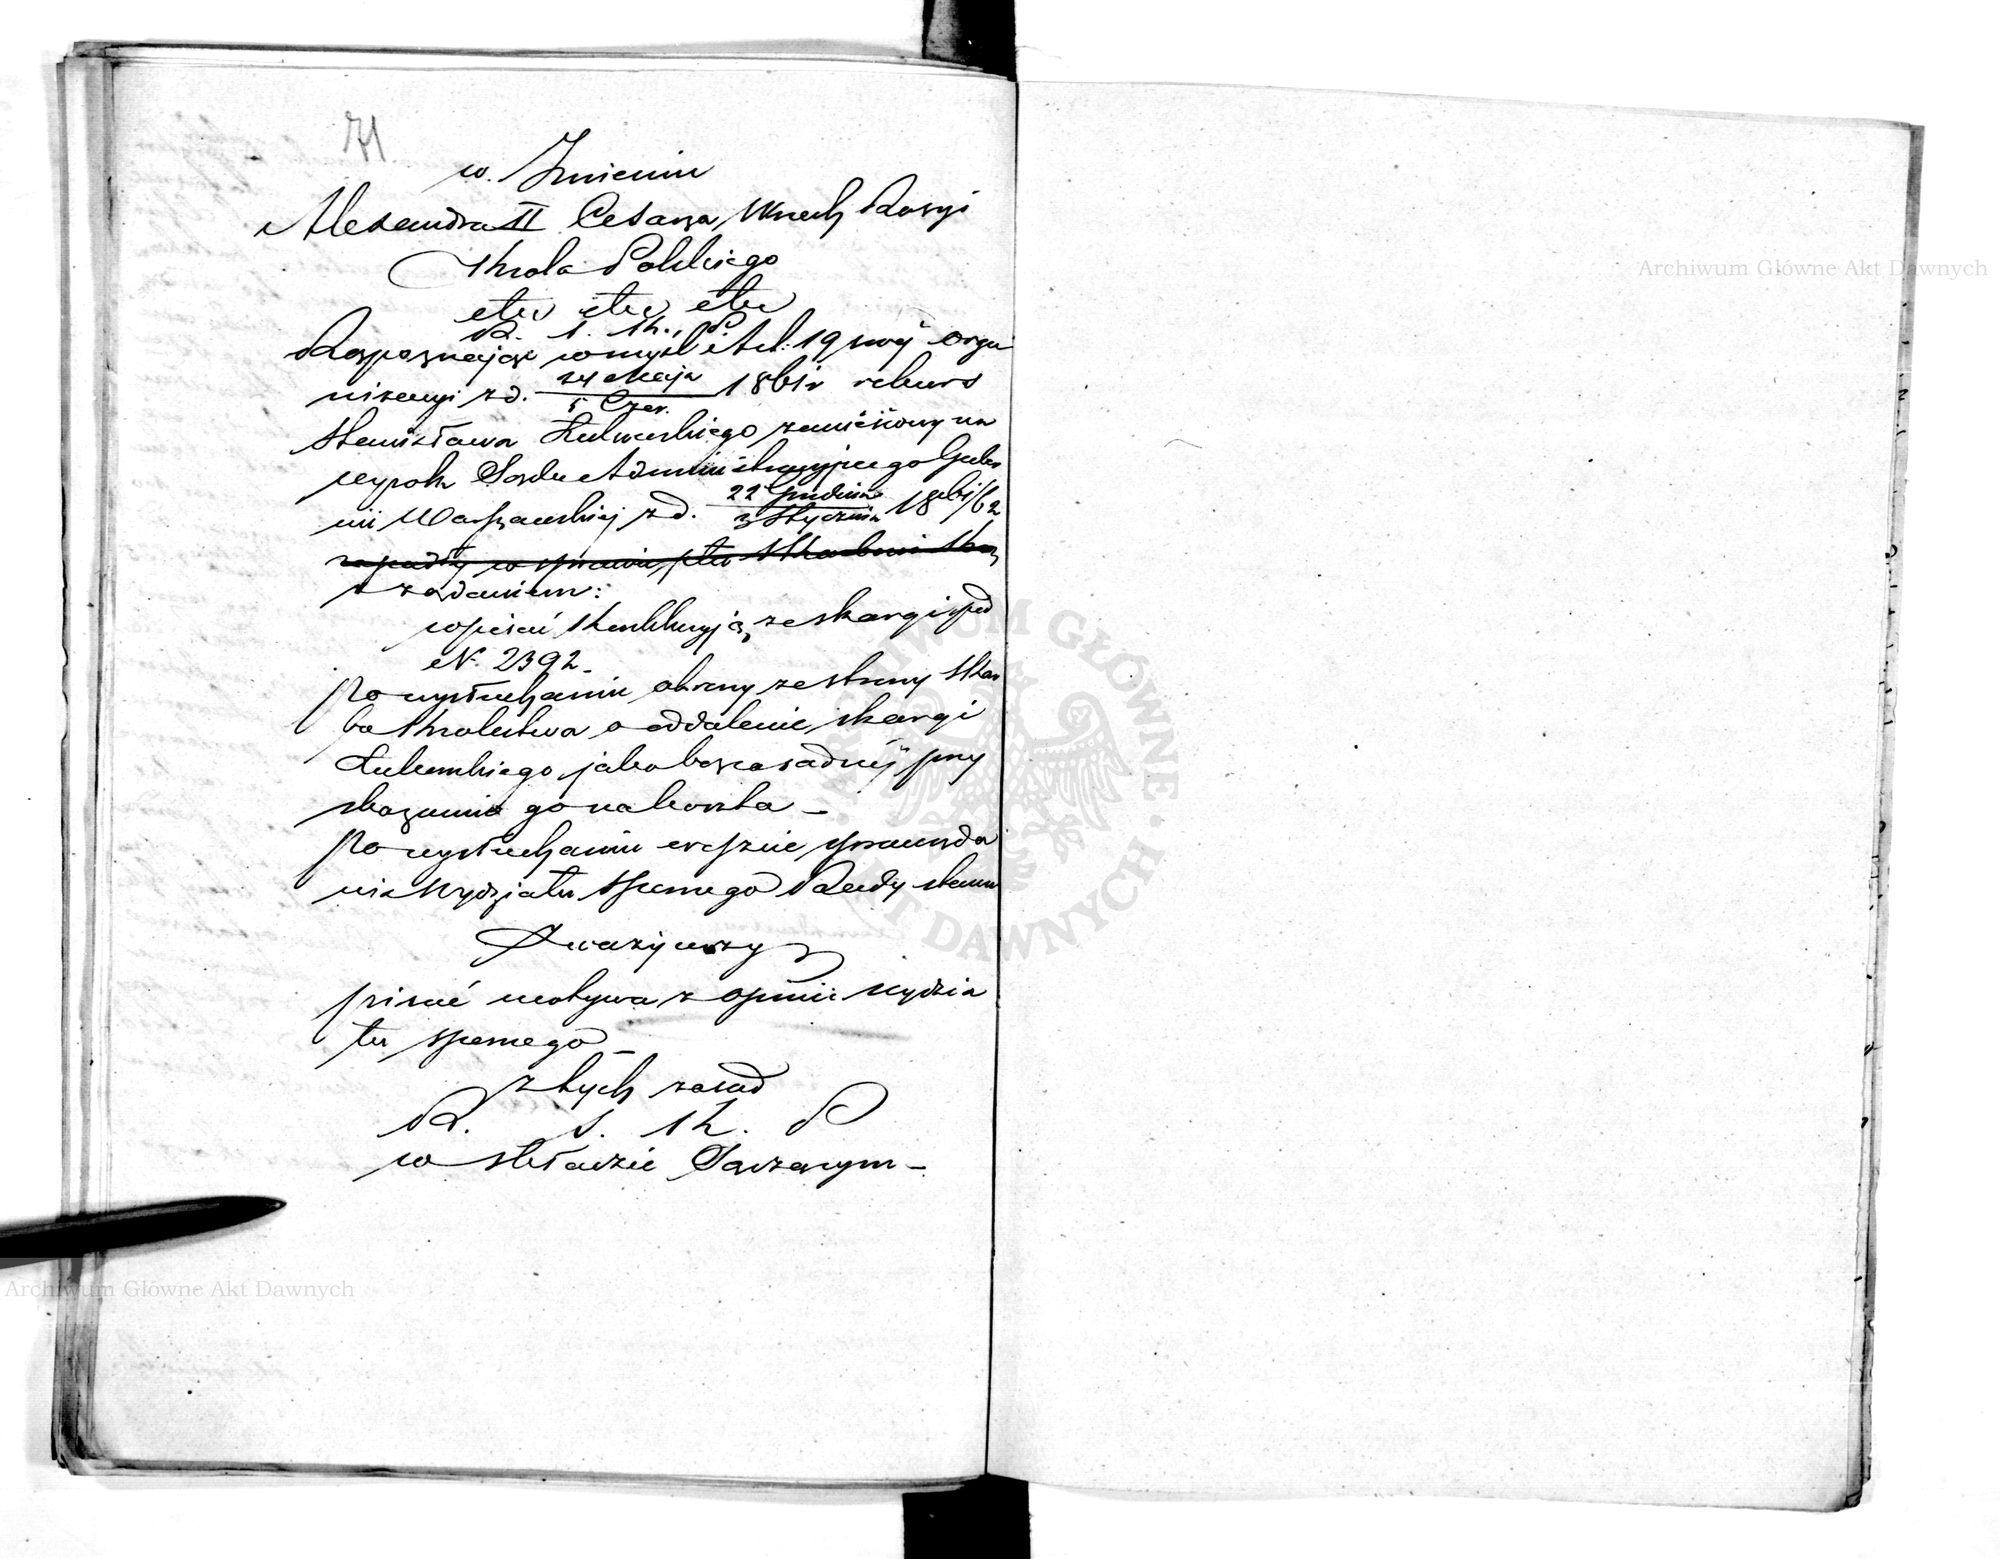 71.
w Imieniu
Alexandra II Cesarza Wszech Rosyi
Króla Polskiego
etc etc etc
R. S. K. P.
Rozpoznając w myśl Art: 19 swéj orga
nizacyi z d. 24 Maja / 5 Czer. 1861 r rekurs
Stanisława zaniesiony na
wyrok Sądu Administracyjnego Guber
nii Warszawskiej z d. 22 Grudnia / 3 Stycznia 1861/62
zapadły w sprawie, ptko Skarbowi Kró
z żądaniem:
wpisać konkluzyją ze skargi pod
N. 2392.
Po wysłuchaniu obrony ze strony Skar
bu Królestwa o oddalenie skargi
jako bezzasadnéj przy
skazaniu go na koszta –
Po wysłuchaniu wreszcie sprawozda
nia Wydziału Spornego Rady Stanu
Zważywszy
pisać motywa z opinii wydzia
łu spornego –
z tych zasad
R. S. K. P
w składzie Sądzącym –
Archiwum Główne Akt Dawnych
Archiwum Główne Akt Dawnych
ARCHIWUM GŁÓWNE AKT DAWNYCH